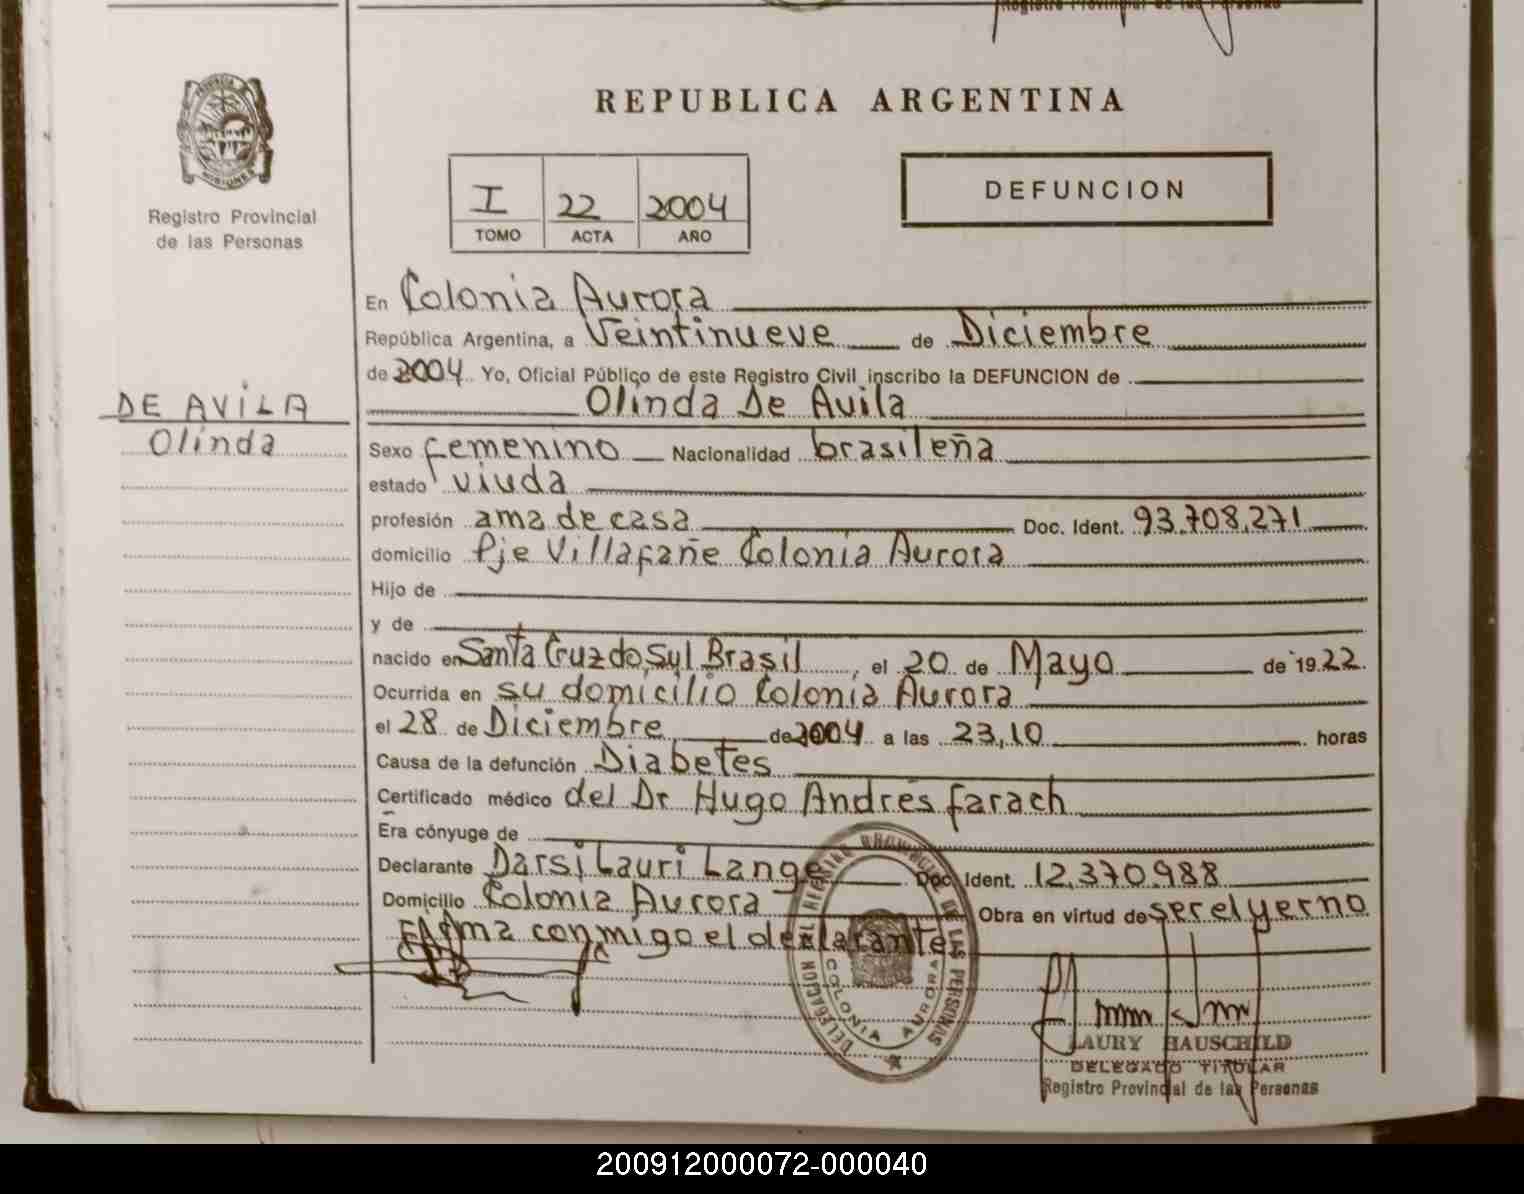 Registro Provincial de las Personas
PROVINCIA DE
MISIONES
Registro Provincial
de las Personas
REPUBLICA ARGENTINA
I 22 2004
TOMO ACTA AÑO
DEFUNCION
En Colonia Aurora
República Argentina, a Veintinueve de Diciembre
de 2004 Yo, Oficial Público de este Registro Civil inscribo la DEFUNCION de
Olinda De Avila
DE AVILA
Olinda
Sexo femenino Nacionalidad brasileña
estado viuda
profesión ama de casa Doc. Ident. 93.708.271
domicilio Pje Villafañe Colonia Aurora
Hijo de
y de
nacido en Santa Cruz do Sul Brasil, el 20 de Mayo de 1922.
Ocurrida en su domicilio Colonia Aurora
el 28 de Diciembre de 2004 a las 23,10 horas
Causa de la defunción Diabetes
Certificado médico del Dr Hugo Andrés Farach
Era cónyuge de
Declarante Darsi Lauri Lange Doc. Ident. 12.370.988
Domicilio Colonia Aurora Obra en virtud de ser el yerno
Firma conmigo el declarante
DELEGACION DEL REGISTRO PROVINCIAL DE LAS PERSONAS
COLONIA AURORA
LAURY HAUSCHILD
DELEGADO TITULAR
Registro Provincial de las Personas
200912000072-000040